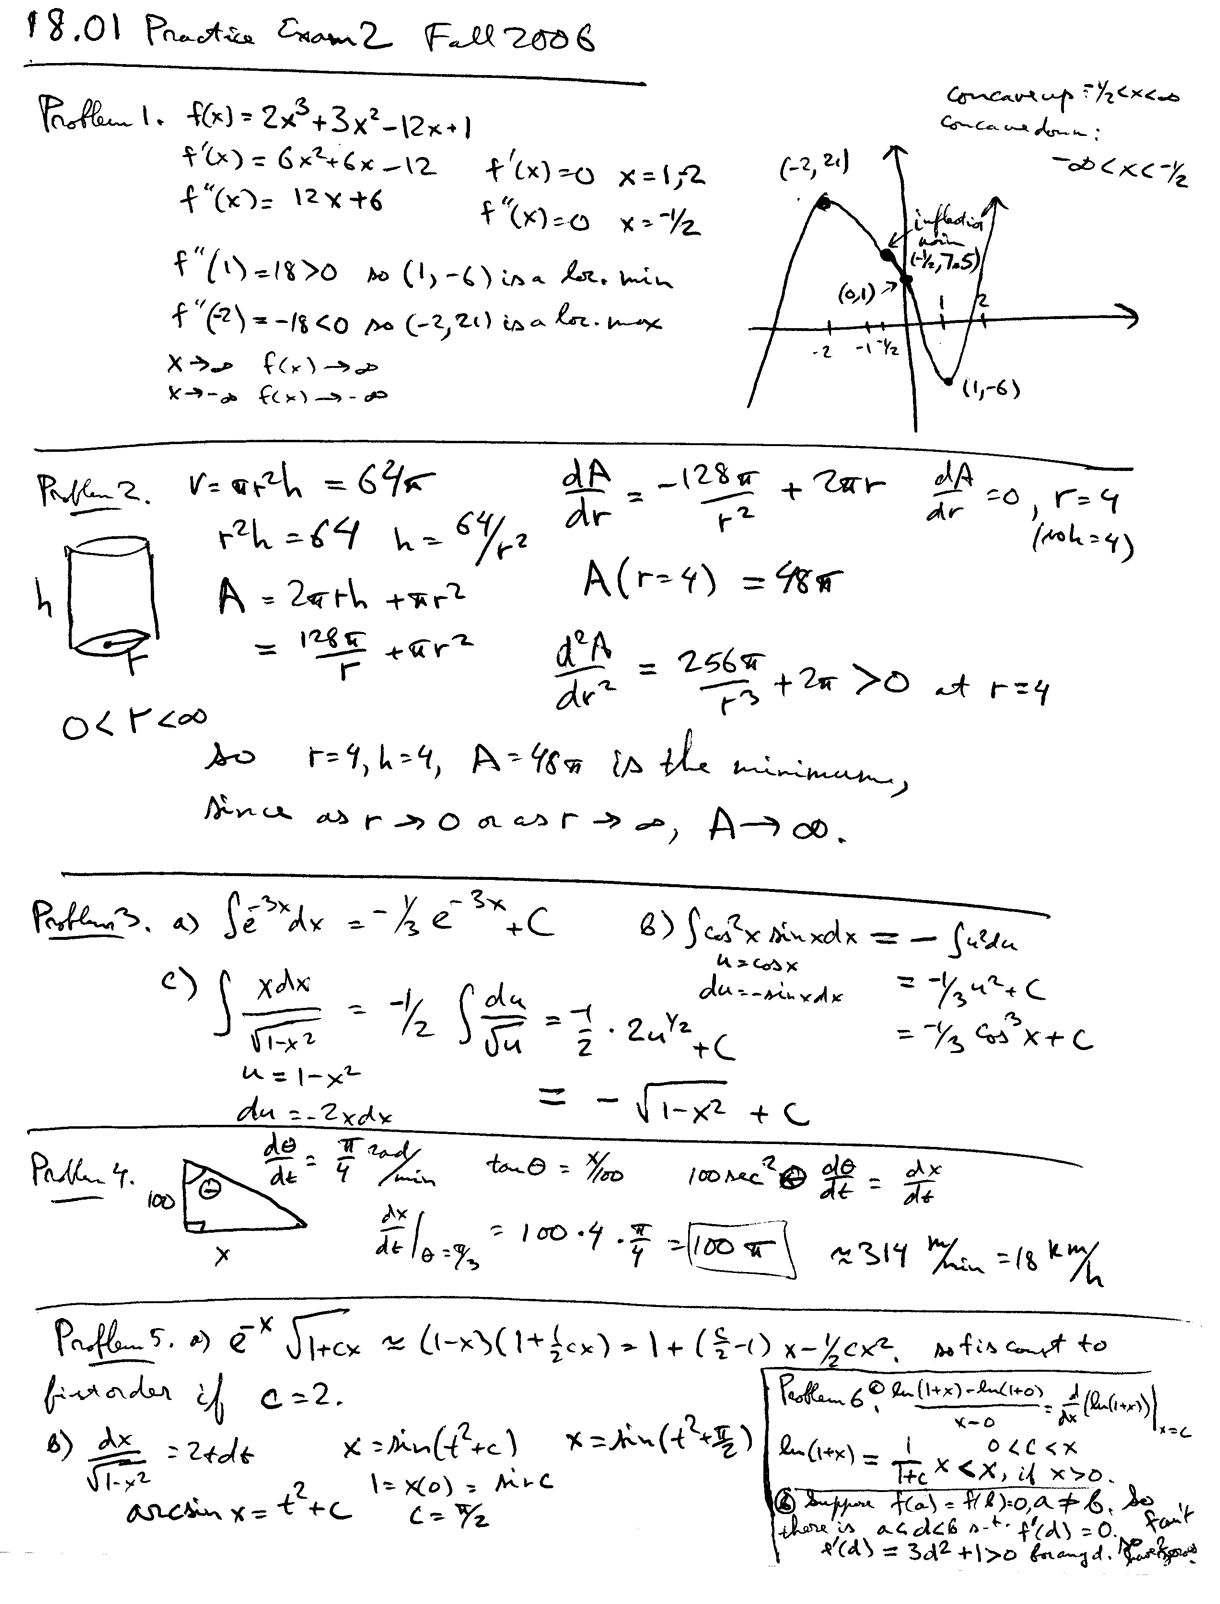 18.01 Practice Exam 2 Fall 2006
Problem 1. f(x) = 2x³+3x²-12x+1
f'(x) = 6x²+6x-12 f'(x)=0 x=1,-2
f''(x) = 12x+6 f''(x)=0 x=-1/2
f''(1)=18>0 so (1,-6) is a loc. min
f''(-2)=-18<0 so (-2,21) is a loc. max
x→∞ f(x)→∞
x→-∞ f(x)→-∞
concave up -1/2<x<∞
concave down:
-∞<x<-1/2
(-2,21)
inflection
point
(-1/2,7.5)
(0,1)
1 2
-2 -1 -1/2
(1,-6)
Problem 2. V=πr²h = 64π
r²h=64 h=64/r²
A = 2πrh+πr²
= 128π/r + πr²
h
r
0<r<∞
dA/dr = -128π/r² + 2πr dA/dr=0, r=4
(so h=4)
A(r=4) = 48π
d²A/dr² = 256π/r³ + 2π >0 at r=4
so r=4, h=4, A=48π is the minimum,
since as r→0 or as r→∞, A→∞.
Problem 3. a) ∫e^{-3x}dx = -1/3 e^{-3x}+C
b) ∫cos²x sinxdx = -∫u²du
u=cosx
du=-sinxdx
= -1/3u²+C
= -1/3 cos³x+C
c) ∫ xdx/√(1-x²) = -1/2 ∫ du/√u = -1/2 · 2u^{1/2}+C
u=1-x²
du=-2xdx
= -√(1-x²) + C
Problem 4. dθ/dt = π/4 rad/min tanθ = x/100 100sec²θ dθ/dt = dx/dt
100
θ
x
dx/dt|θ=π/3 = 100·4·π/4 = 100π ≈314 m/min =18 km/h
Problem 5. a) e^{-x}√(1+cx) ≈ (1-x)(1+½cx) = 1+(c/2-1)x-½cx². so f is const to
first order if c=2.
b) dx/√(1-x²) = 2tdt x=sin(t²+c) x=sin(t²+π/2)
1=x(0)=sin c
arcsin x = t²+c c=π/2
Problem 6. a) (ln(1+x)-ln(1+0))/(x-0) = d/dx(ln(1+x))|x=c
ln(1+x) = 1/(1+c) x<x, if x>0.
0<c<x
b) Suppose f(a)=f(b)=0, a≠b. So
there is a<d<b s.t. f'(d)=0.
f'(d) = 3d²+1>0 for any d. so
can't